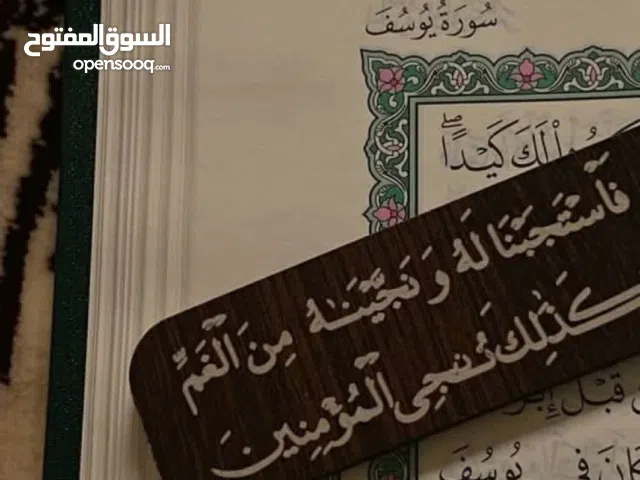 السوق المفتوح
opensooq.com
سُورَةُ يُوسُفَ
لَكَ كَيْدًا ۖ
فَاسْتَجَبْنَا لَهُ وَنَجَّيْنَاهُ مِنَ الْغَمِّ
كَذَٰلِكَ نُنجِي الْمُؤْمِنِينَ
قَبْلُ
كَانَ فِي يُوسُفَ